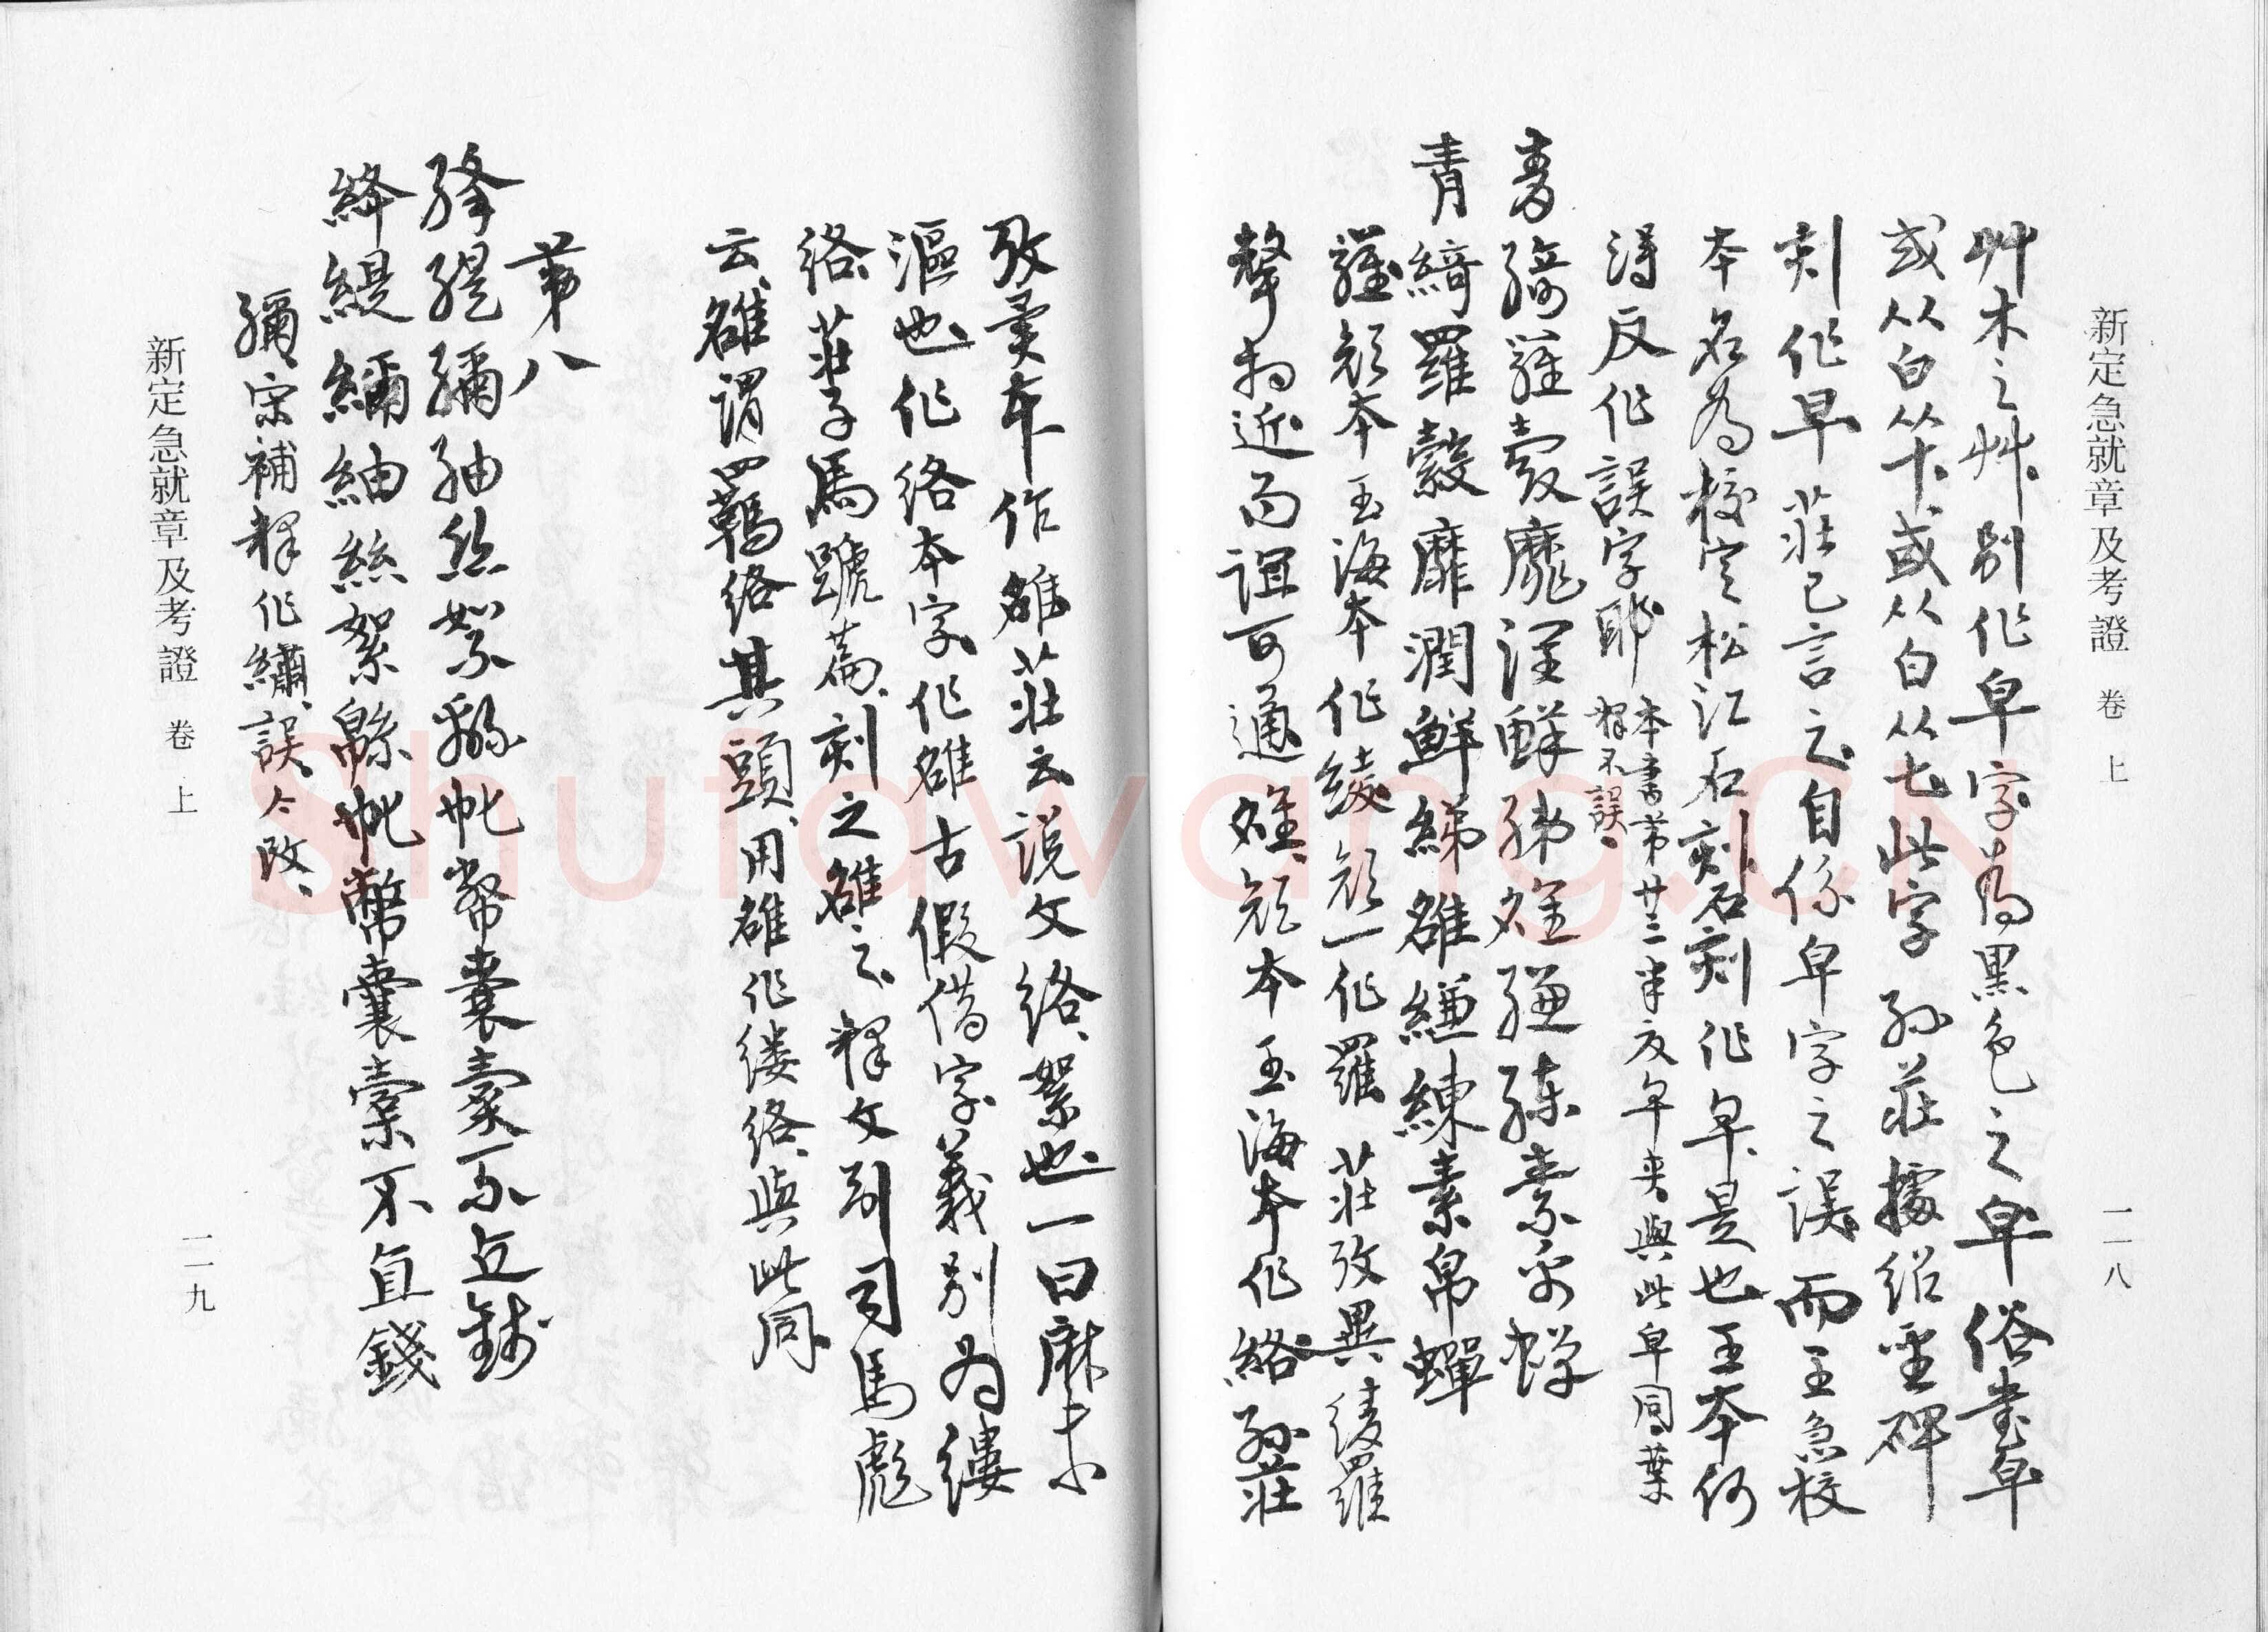 新定急就章及考證 卷上 一一八
艸木之艸、別作皁字為黑色之皁、俗書皁
或从白从十、或从白从七、此字孙莊據紹聖碑
刻作早、莊已言之、自係皁字之误、而王急校
本名為校定松江石刻、石刻作皁、是也、王本何
得反作误字耶
本書第廿三章灰皁夹與此皁同、葉
釋不误、
青綺羅縠靡潤鮮綈雒縑練素帛蟬
青綺羅縠靡潤鮮綈雒縑練素帛蟬
羅、顏本玉海本作綾、顏一作羅、莊攷異、綾羅
聲相近而誼可通、雒、顏本玉海本作絡、孙莊
攷異本作雒、莊云、説文絡、絮也、一曰麻未
漚也、作絡本字、作雒古假借字、義別為縷
絡、莊子馬蹏篇、刻之雒之、释文引司馬彪
云、雒謂羈絡其頭、用雒作縷絡、與此同
第八
絳緹䌤紬絲絮緜㠲幣囊橐不直錢
絳緹䌤紬絲絮緜㠲幣囊橐不直錢
䌤、宋補释作繡、誤、今改、
新定急就章及考證 卷上 一一九
Shufawang.CN